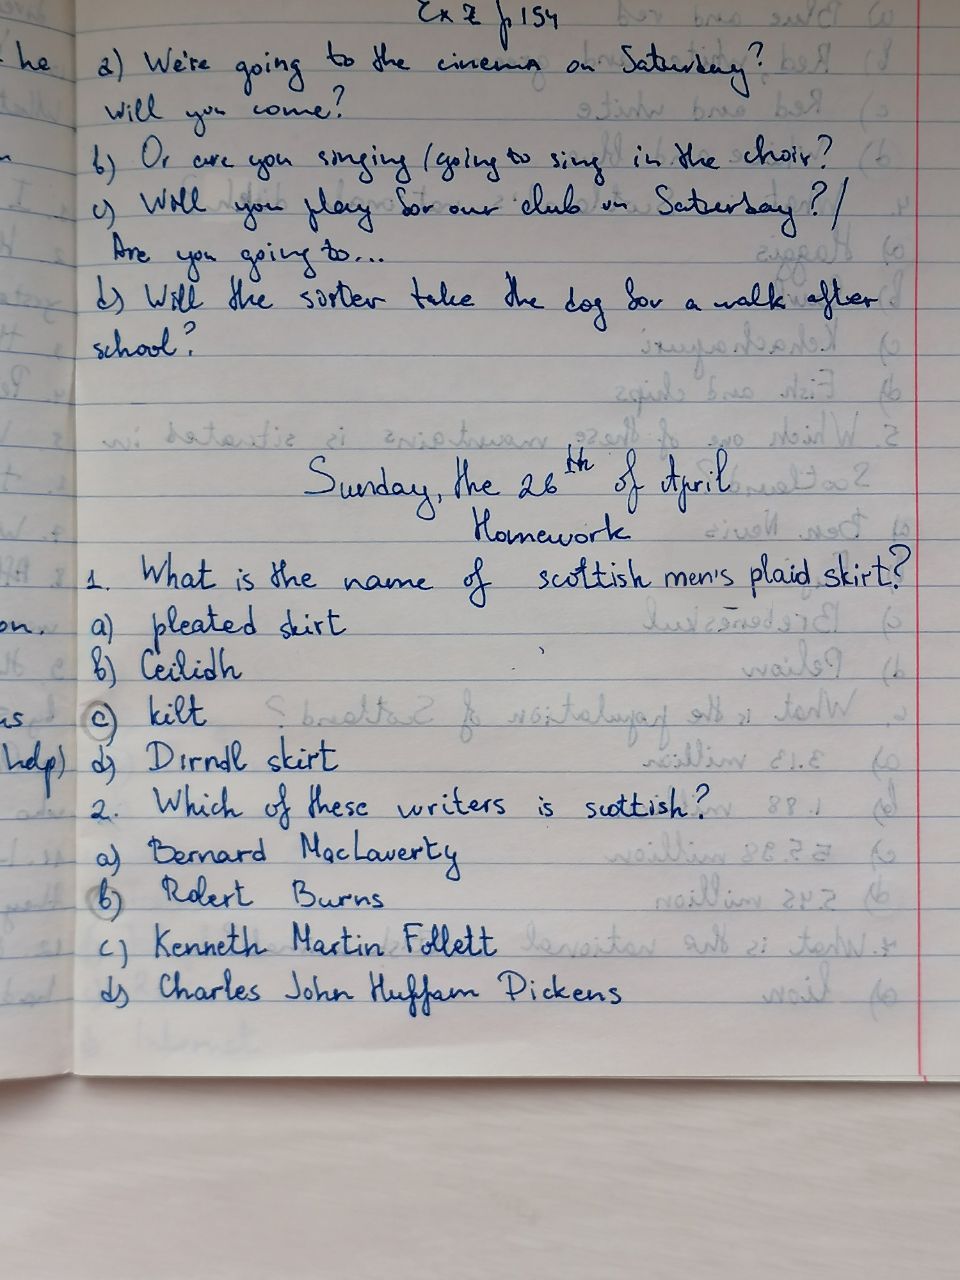 Ex 2 p 154
a) We're going to the cinema on Saturday?
Will you come?
b) Or are you singing / going to sing in the choir?
c) Will you play for our club on Saturday? /
Are you going to...
d) Will the sister take the dog for a walk after
school?
Sunday, the 26th of April
Homework
1. What is the name of scottish men's plaid skirt?
a) pleated skirt
b) Ceilidh
c) kilt
d) Dirndl skirt
2. Which of these writers is scottish?
a) Bernard MacLaverty
b) Robert Burns
c) Kenneth Martin Follett
d) Charles John Huffam Dickens
he
on.
help)